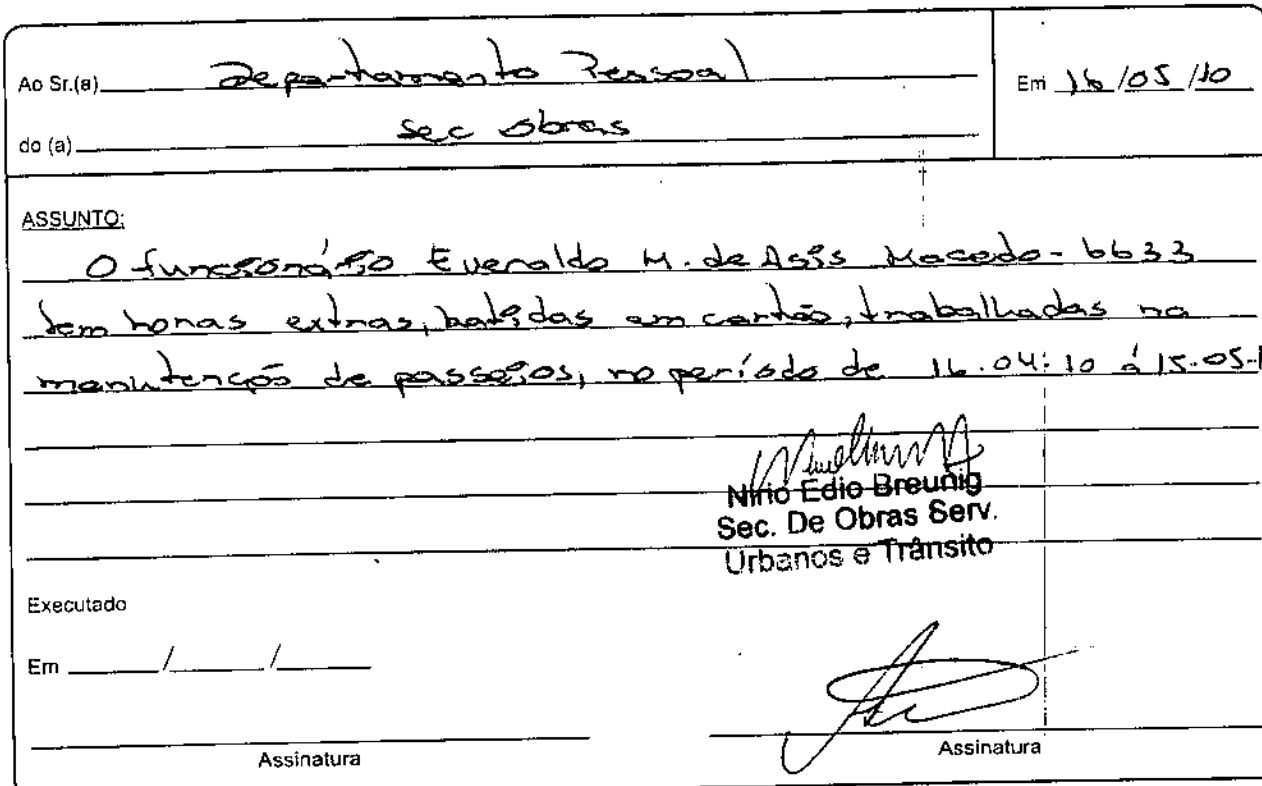 Ao Sr.(a) Departamento Pessoal
Em 16/05/10
do (a) Sec Obras
ASSUNTO:
O funcionário Everaldo M. de Assis Macedo - 6633
tem horas extras, batidas em cartão, trabalhadas na
manutenção de passeios, no período de 16.04.10 á 15.05.1
Nirio Edio Breunig
Sec. De Obras Serv.
Urbanos e Trânsito
Executado
Em / /
Assinatura
Assinatura